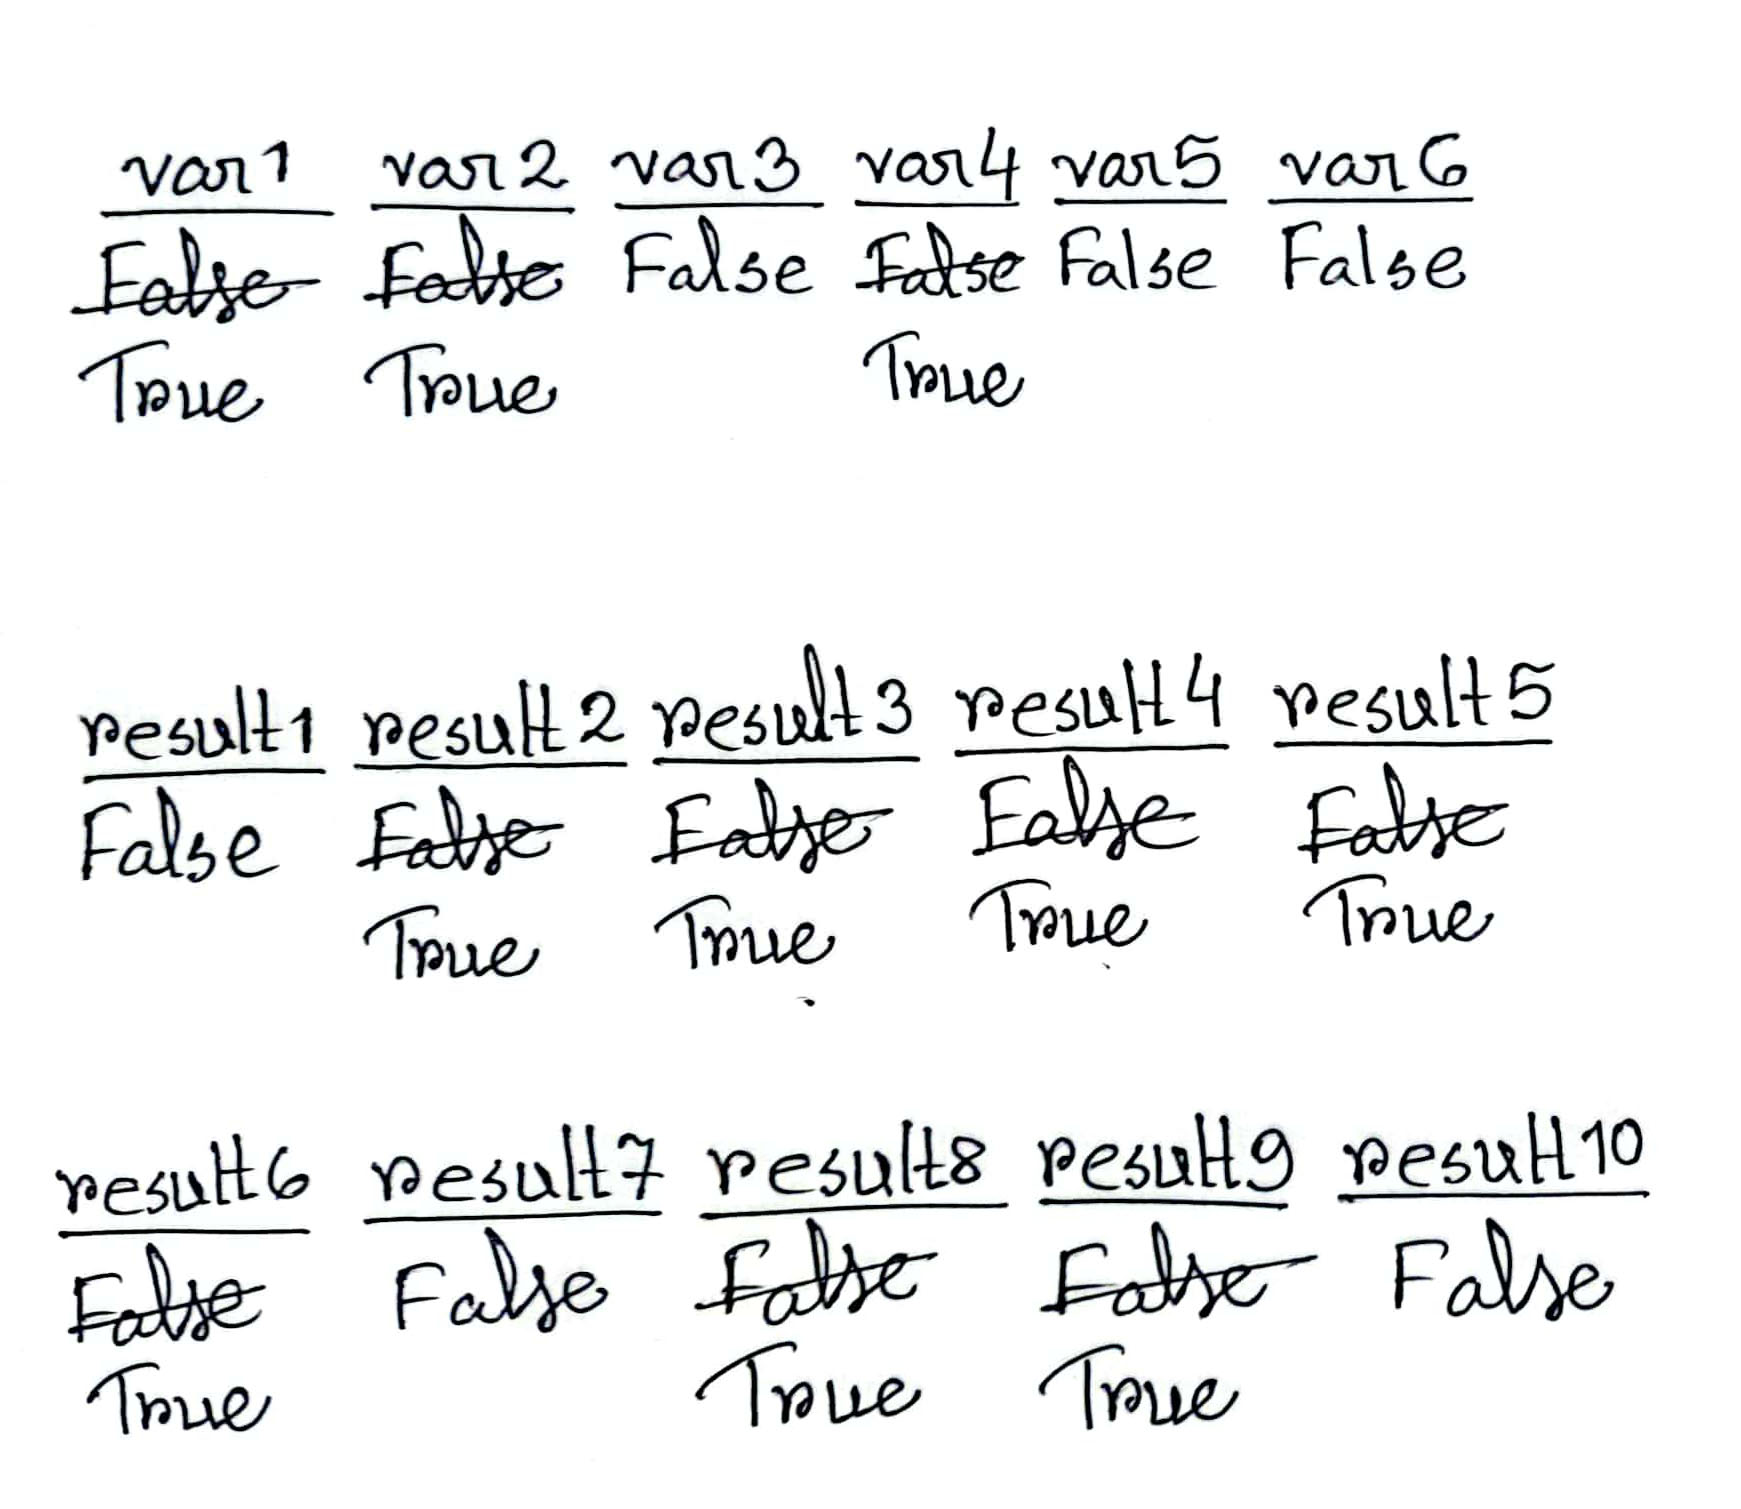 var1 var2 var3 var4 var5 var6
False False False False False False
True True True
result1 result2 result3 result4 result5
False False False False False
True True True True
result6 result7 result8 result9 result10
False False False False False
True True True